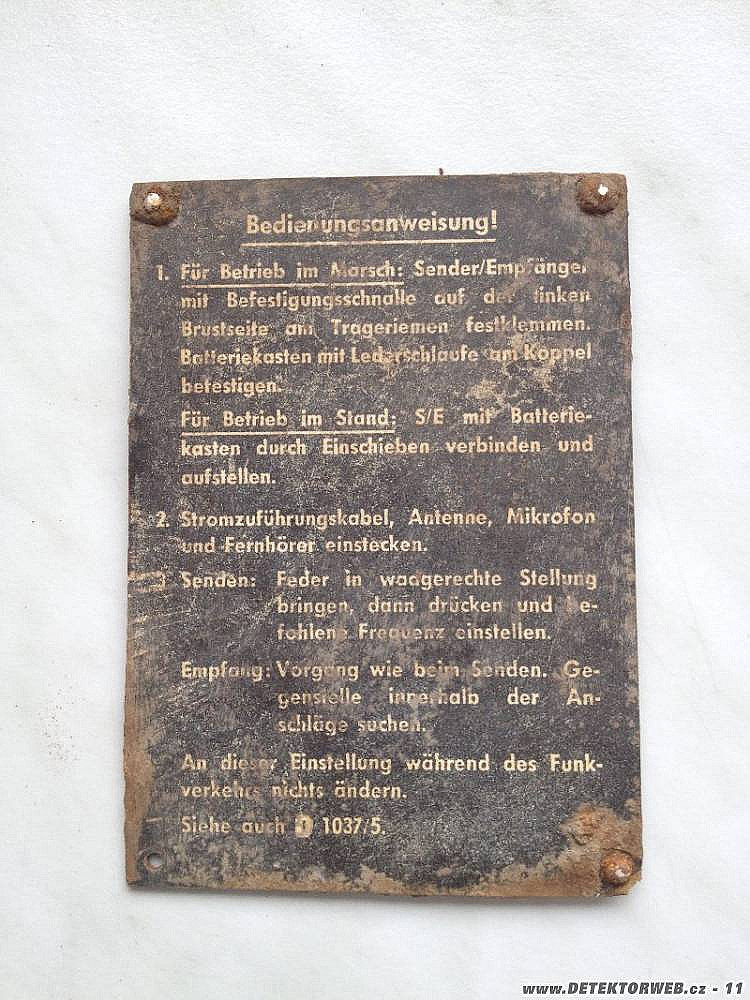 Bedienungsanweisung!
1. Für Betrieb im Marsch: Sender/Empfänger
mit Befestigungsschnalle auf der linken
Brustseite am Trageriemen festklemmen.
Batteriekasten mit Lederschlaufe am Koppel
befestigen.
Für Betrieb im Stand: S/E mit Batterie-
kasten durch Einschieben verbinden und
aufstellen.
2. Stromzuführungskabel, Antenne, Mikrofon
und Fernhörer einstecken.
3. Senden: Feder in waagerechte Stellung
bringen, dann drücken und be-
fohlene Frequenz einstellen.
Empfang: Vorgang wie beim Senden. Ge-
genstelle innerhalb der An-
schläge suchen.
An dieser Einstellung während des Funk-
verkehrs nichts ändern.
Siehe auch D 1037/5.
www.DETEKTORWEB.cz - 11